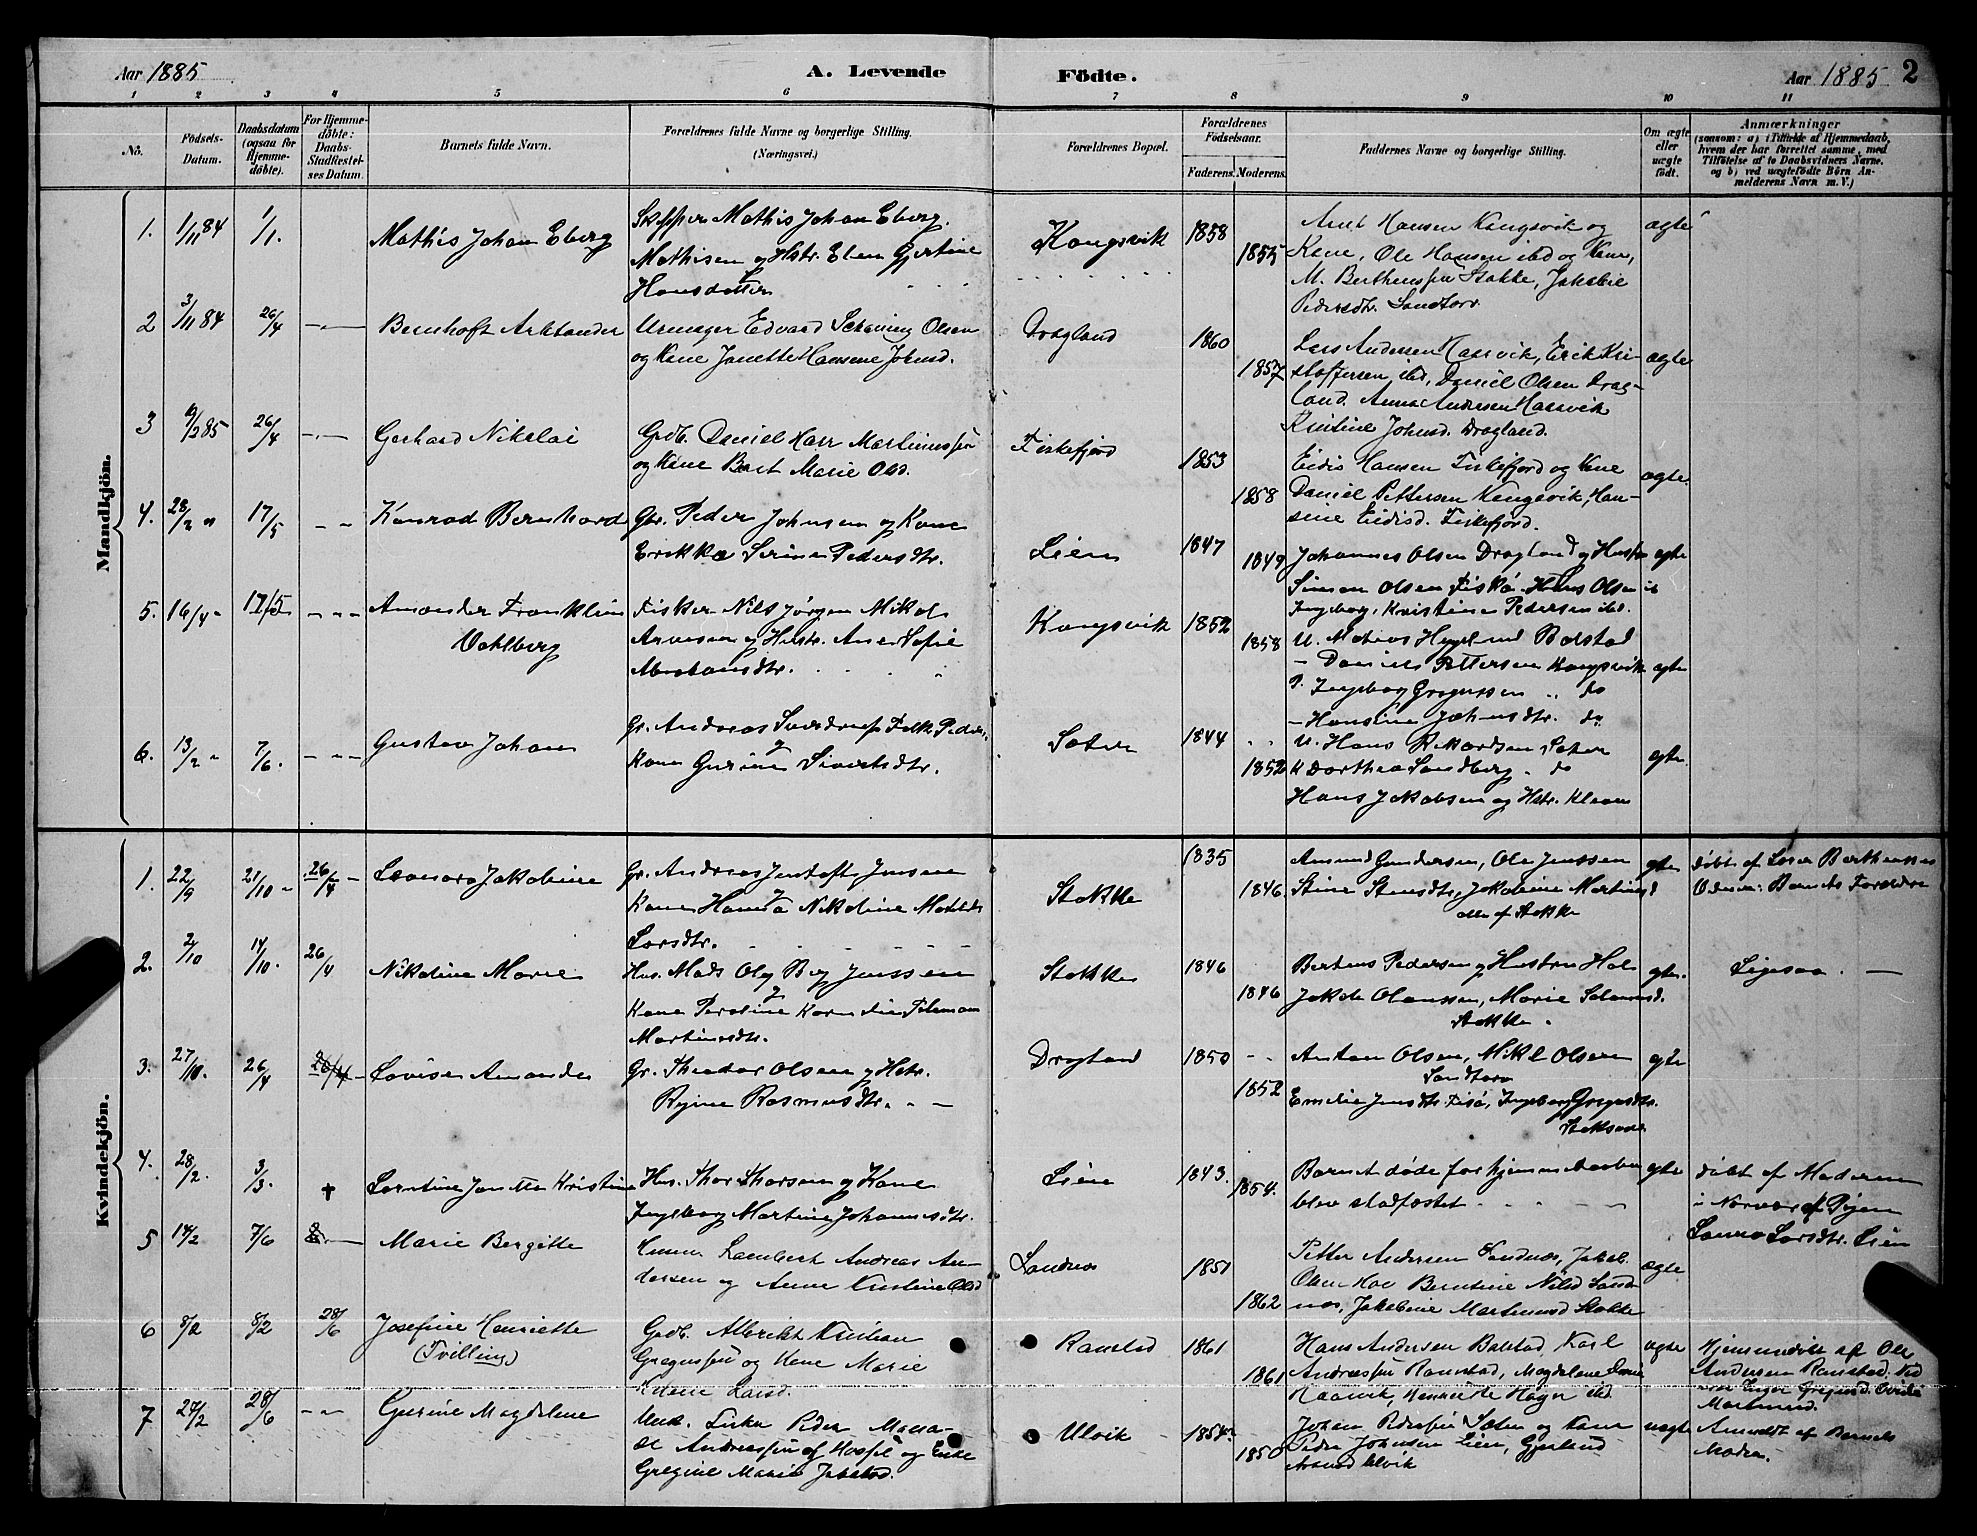 Aar 1885
A. Levende
Födte.
Aar 1885
2
1 2 3 4 5 6 7 8 9 10 11
No.
Födsels-
Datum.
Daabsdatum
(ogsaa for
Hjemme-
döbte).
For Hjemme-
döbte:
Daabs-
Stadfæstel-
ses Datum.
Barnets fulde Navn.
Forældrenes fulde Navne og borgerlige Stilling.
(Næringsvei.)
Forældrenes Bopæl.
Forældrenes
Födselsaar.
Faderens. Moderens.
Faddernes Navne og borgerlige Stilling.
Om ægte
eller
uægte
födt.
Anmærkninger
(saasom: a) i Tilfælde af Hjemmedaab,
hvem der har forrettet samme, med
Tilföielse af to Daabsvidners Navne.
og b) ved uægtefödte Börn An-
melderens Navn m. V.)
Mandkjön.
1. 1/11 84 1/1.
Mathis Johan Eberg
Skipper Mathis Johan Eberg
Mathisen og Hstr. Elen Gjertine
Hansdatter
Kongsvik
1858
1855
Arnt Hansen Kongsvik og
Kone, Ole Hansen ibd og Kone,
M. Berthenssen Stokke, Jakobie
Pedersdtr. Sandtorv.
ægte
2 3/11 84 26/4
Bernhoft Arktander
Urmager Edvard Schøning Olsen
og Kone Janette Hansine Johnsd.
Dragland
1860
1857
Lars Andersen Haarvik, Erik Kri-
stoffersen ibd, Daniel Olsen Drag-
land. Anna Andersen Haarvik
Kristine Johnsd. Dragland.
ægte
3 10/2 85 26/4
Gerhard Nikolai
Grdb. Daniel Karr Martinussen
og Kone Berit Marie Olsd.
Fiskefjord
1853
1858
Eidis Hansen Fiskefjord og Kone
Daniel Pettersen Kongsvik, Han-
sine Eidisd. Fiskefjord.
ægte
4. 28/2 " 17/5
Konrad Bernhard
Gr. Peder Johnsen og Kone
Erikka Serine Pedersdtr.
Lien
1847
1849
Johannes Olsen Dragland og Hustru
Simon Olsen Fiskø. Hans Olsen
Ingeborg, Kristine Pedersen ibd.
ægte
5. 16/4 " 17/5
Amandus Franklin
Vahlberg
Fisker Nils Jørgen Mikal
Arnesen og Hstr. Ane Sofie
Kongsvik
1852
1858
U. Matias Hegelund Bolstad
— Daniel Pettersen Kongsvik
P. Ingeborg Gregussen " do
— Hansine Johnsdtr. do
ægte
6. 13/2 " 7/6.
Gustav Johan
Gr. Andreas Sverdrup Falk Peders.
Kone Gurine Sivertsdtr.
Sæter
1844
1852
U. Hans Rikardsen Sæter
K Dorthea Sandberg. do
Hans Jakobsen og Hstr. Kleven
ægte
Kvindekjön.
1. 22/9 21/10 26/4
Leonora Jakobine
Gr. Andreas Justoft Jensen
Kone Hanna Nikoline Matilde
Larsdtr.
Stokke
1835
1846
Amund Gundersen, Ole Jenssen
Stine Stensdtr, Jakobine Martinusd
alle af Stokke
ægte
døbt af Lars Berthensen
Barnets Forældre
2. 2/10 14/10. 26/4
Nikoline Marie
Hus. Mads Olg Berg Jenssen
Kone Perdine
Martinusdtr.
Stokke
1846
1846
Bertens Pedersen og Hustru Hol
Jakob Olaussen, Marie Salamonsd.
Stokke.
ægte.
Ligesaa. —
3. 27/10. 26/4 26/4
Lovise Amanda
Gr. Theodor Olsen og Hstr.
Regine Rasmusdtr.
Dragland
1850
1852
Anton Olsen, Mikl Olsen
Sandtorv
Emilie Jensdtr. Fisø, Ingeborg Gregusdtr.
ægte
4. 28/2. 3/3. †
Lorntine Janetta Kristine
Hus. Thor Thorsen og Kone
Ingeborg Martine Johannesdtr.
Lien
1843.
1854.
Barnet døde før hjemmedaaben
blev stadfæstet
ægte
døbt af Moderen
i Nærvær af Pigen
Laura Larsdtr. Lien
5 14/2 7/6
Marie Bergitte
Lambert Andreas An-
dersen og Anne Kristine Olsd
Sandnes
1851
1862
Petter Andersen Sandnæs, Jakob
Olsen Hov Berntine Nilsd Sand-
næs, Jakobine Martinusd Stokke
ægte
6 8/2 8/2 28/6
Josefine Henriette
(Tvilling)
Grdb. Albrikt Kristian
Gregussen og Kone Marie
Larsd.
Ramstad
1861
1861
Hans Andersen Bolstad, Karl
Andreassen Ramstad, Magdalene
Haarvik, Henriette Hagen ibd
ægte
Hjemmedøbt af Ole
Andersen Ramstad.
Martinusd.
7 24/2 28/6
Gurine Magdalene
Unk. Fisker Peder
Andreassen af Hospl og Enke
Gregine Marie Jakobsd.
Ulvik
1854
1850
Johan Pedersen Sæter og Kone
Peder Johnsen Lien, Gjertrud
Ulvik
uægte
Anmeldt af Barnets
Moder.